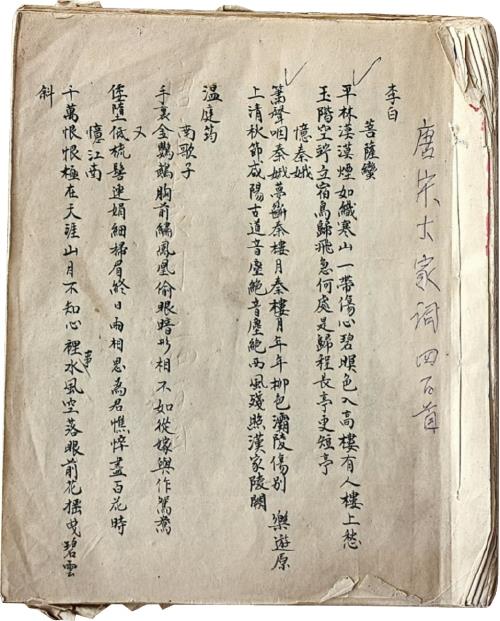 唐宋大家词四百首
李白
菩薩蠻
平林漠漠煙如織寒山一帶傷心碧暝色入高樓有人樓上愁
玉階空竚立宿鳥歸飛急何處是歸程長亭更短亭
憶秦娥
簫聲咽秦娥夢斷秦樓月秦樓月年年柳色灞陵傷別 樂遊原
上清秋節咸陽古道音塵絕音塵絕西風殘照漢家陵闕
溫庭筠
南歌子
手裏金鸚鵡胸前繡鳳凰偷眼暗形相不如從嫁與作鴛鴦
又
倭墮低梳髻連娟細掃眉終日兩相思為君憔悴盡百花時
憶江南
千萬恨恨極在天涯山月不知心裡事水風空落眼前花搖曳碧雲
斜